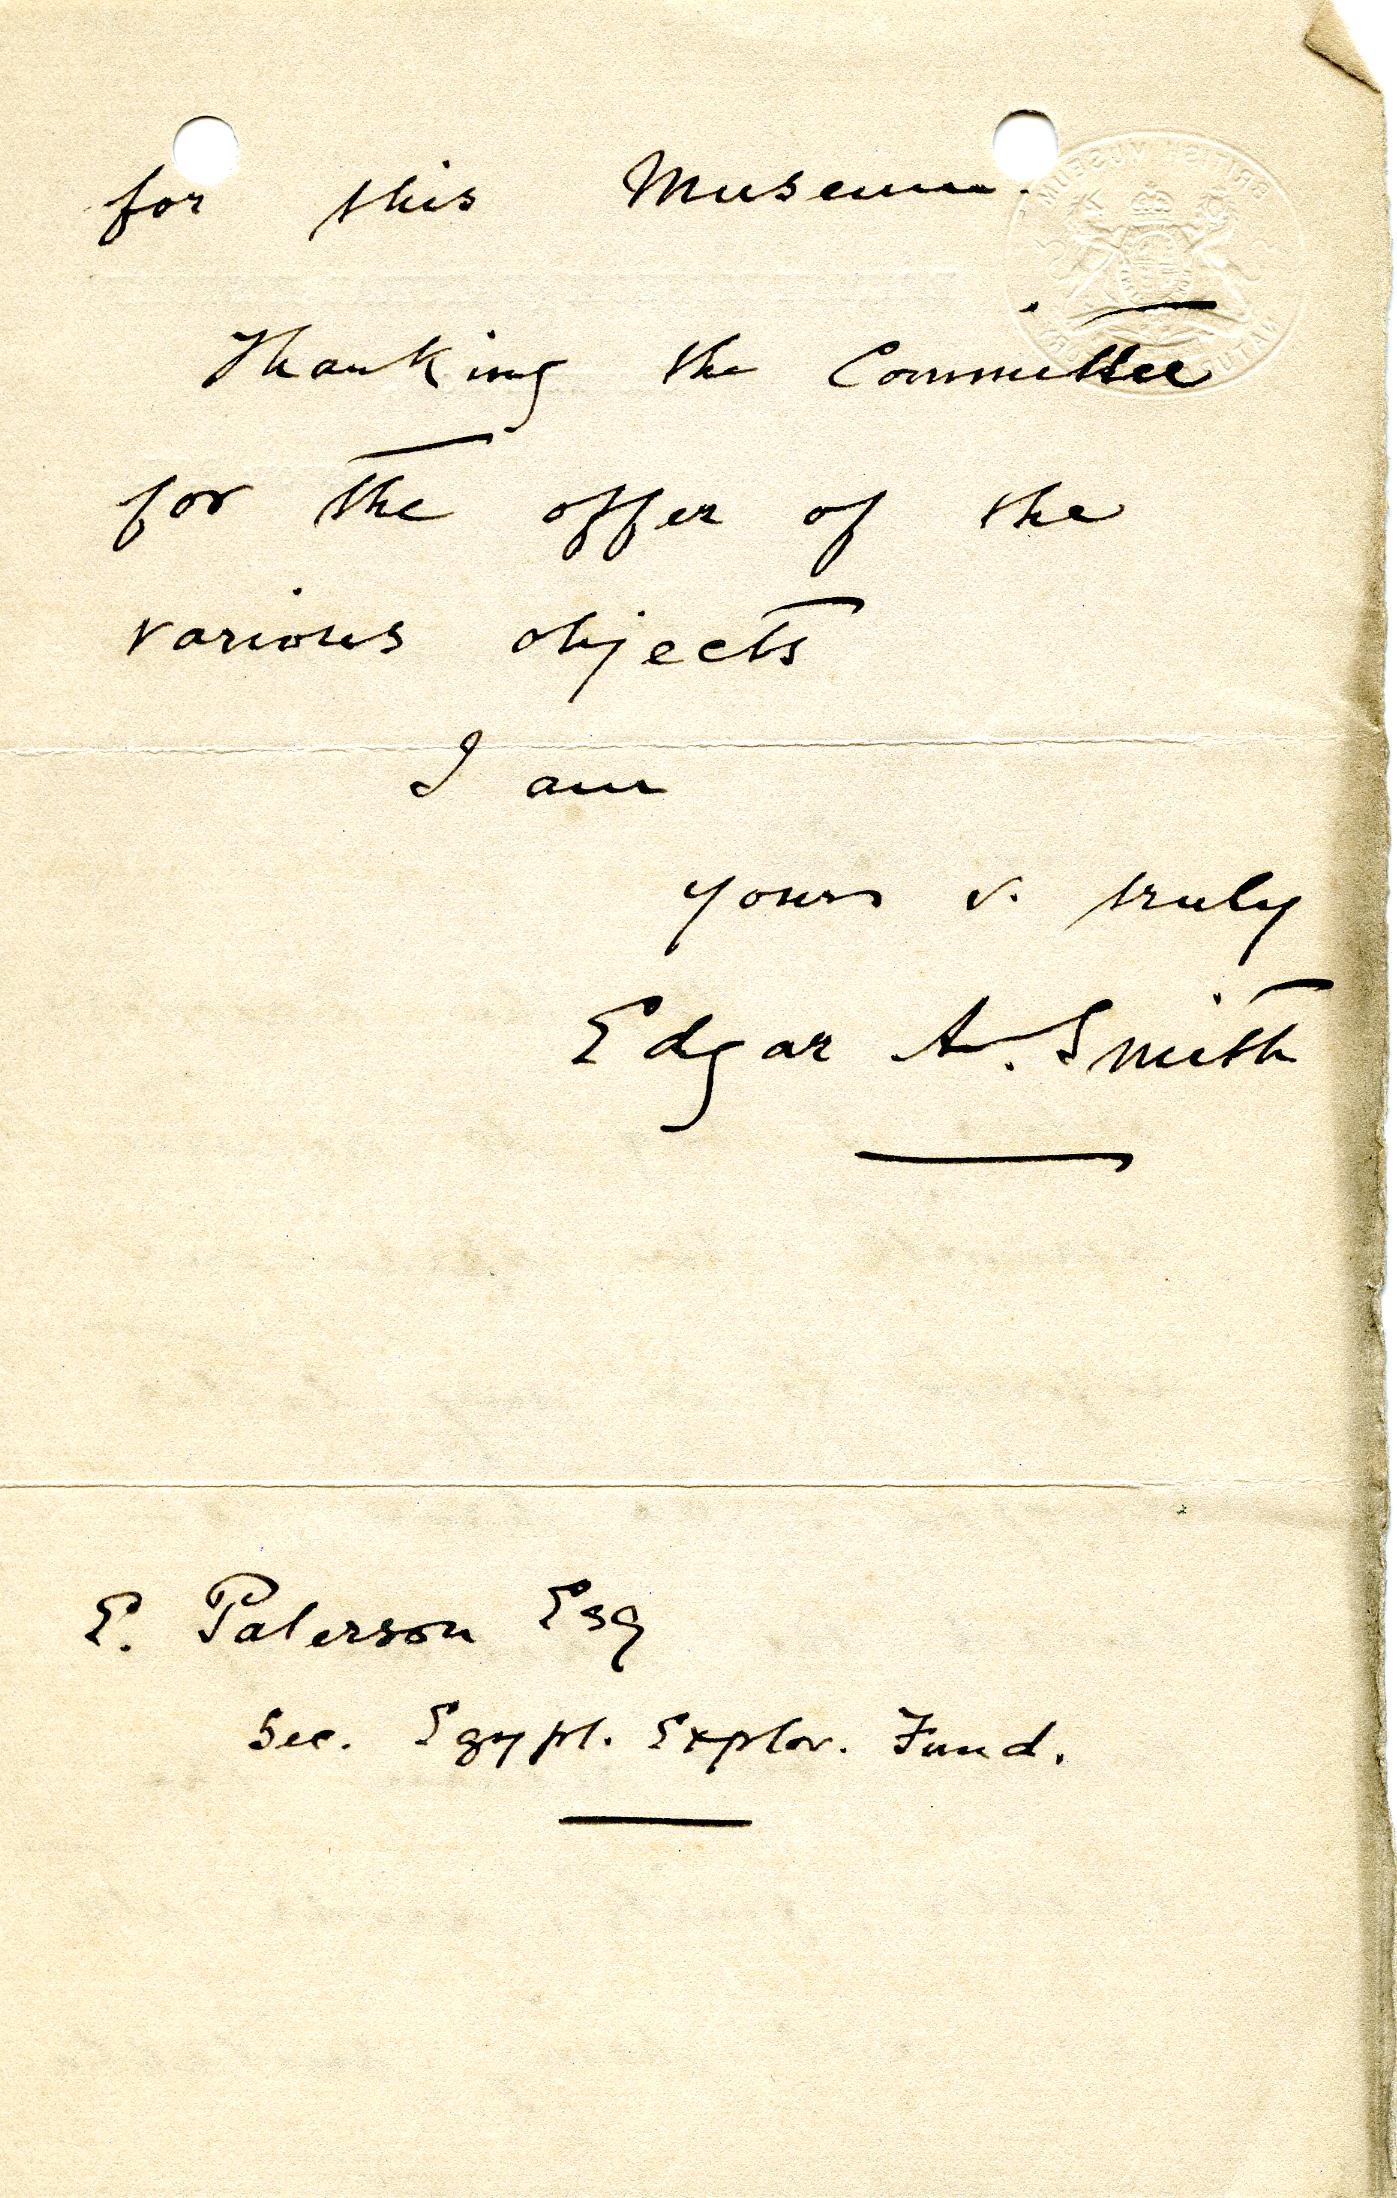 for this Museum.
Thanking the Committee
for the offer of the
various objects
I am
yours v. truly
Edgar A. Smith
E. Paterson Esq
Sec. Egypt. Explor. Fund.
BRITISH MUSEUM